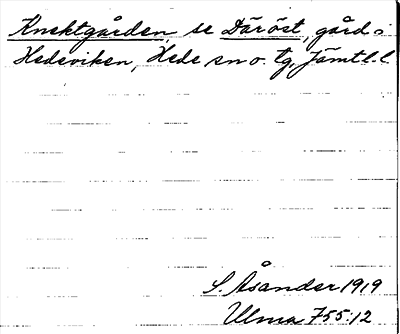 Knektgården, se Däröst, gård i
Hedeviken, Hede sn o. tg, Jämtl. l.
S. Åsander 1919
Ulma 755:12